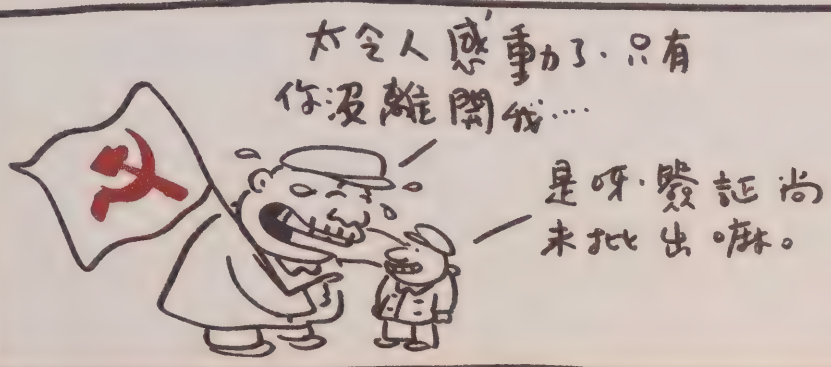 太令人感動了·只有
你沒離開我……
是呀·簽証尚
未批出嘛。